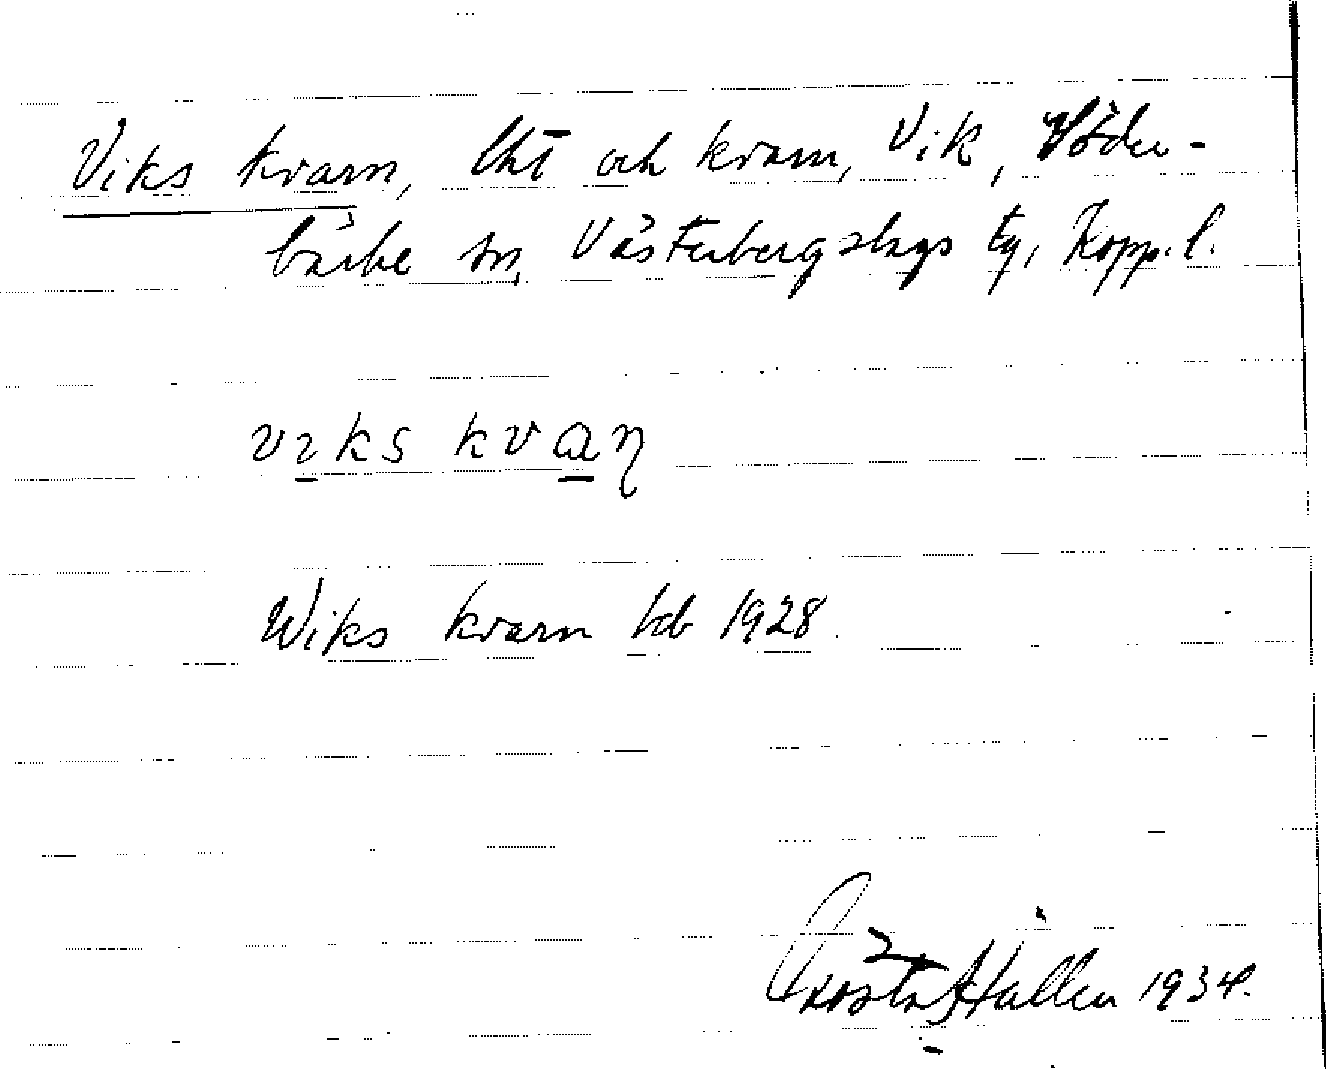 Viks kvarn, Lht och kvarn, Vik, Söder-
bärke sn, Västerbergslags tg, Kopp. l.
vıks kvaɳ
Wiks kvarn kb 1928.
Gösta Hallén 1934.